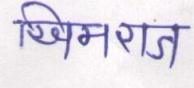 खिमराज